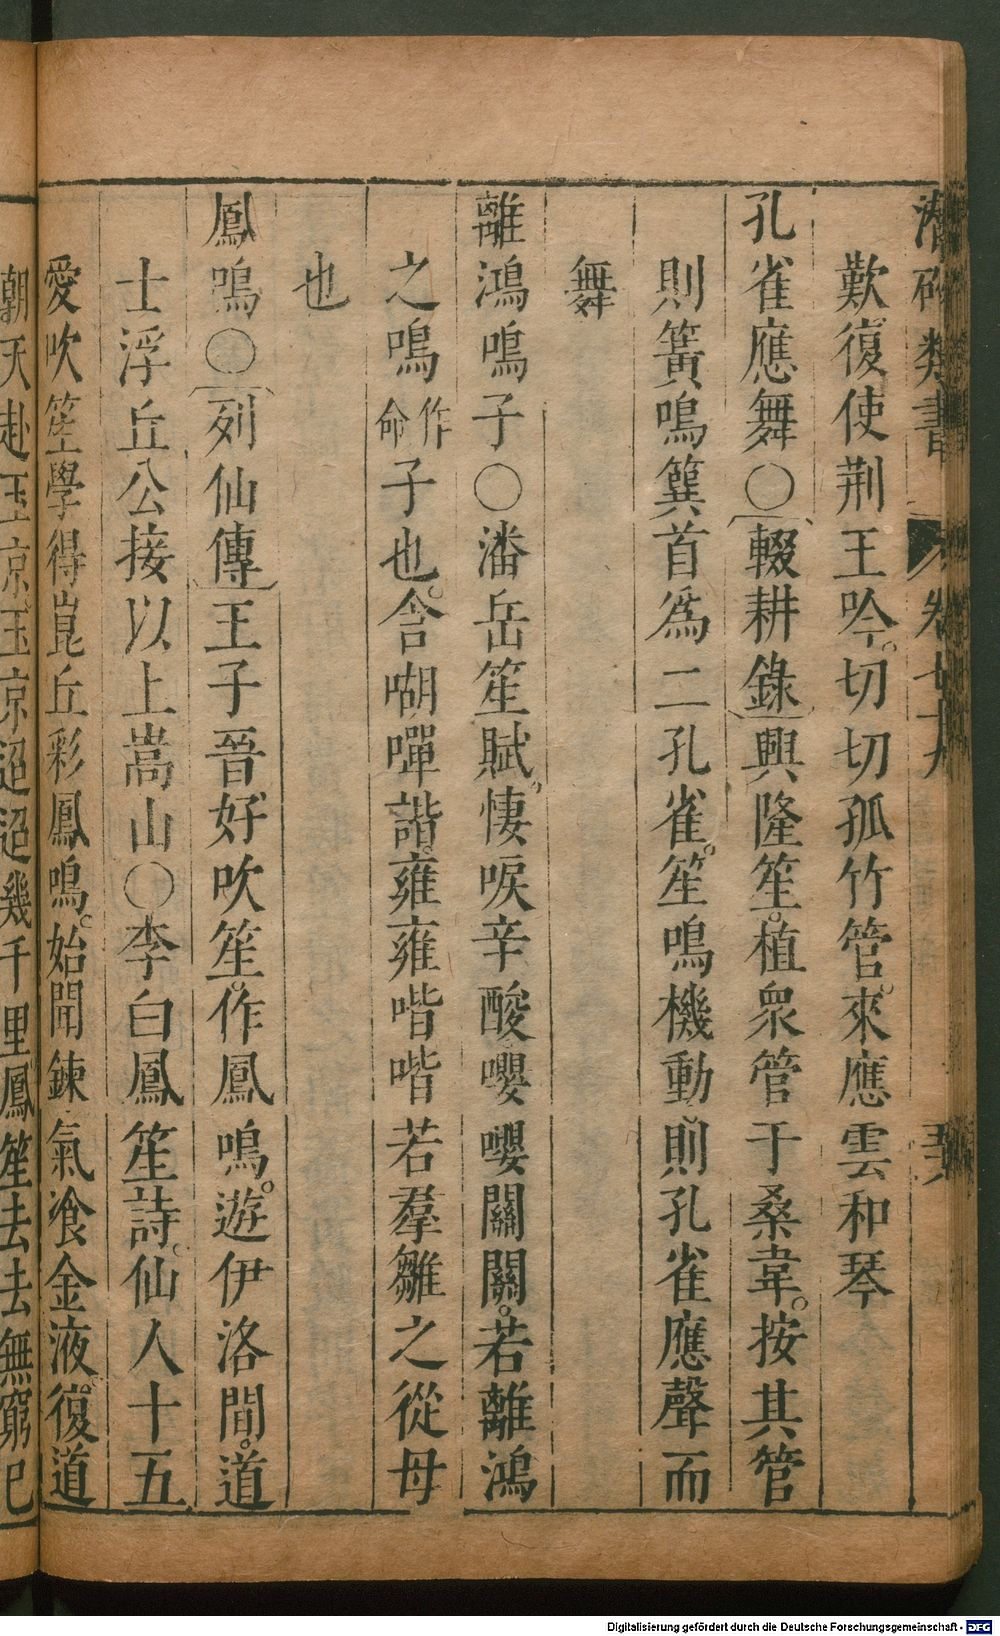 潛確類書 卷七十九
歎復使荆王吟切切孤竹管來應雲和琴
孔雀應舞○輟耕錄興隆笙植衆管于桑韋按其管
則簧鳴簨首爲二孔雀笙鳴機動則孔雀應聲而
舞
離鴻鳴子○潘岳笙賦悽唳辛酸嚶嚶關關若離鴻
之鳴作命子也含㗅嘽諧雍雍喈喈若羣雛之從母
也
鳳鳴○列仙傳王子晉好吹笙作鳳鳴遊伊洛間道
士浮丘公接以上嵩山○李白鳳笙詩仙人十五
愛吹笙學得崑丘彩鳳鳴始聞鍊氣飡金液復道
朝天赴玉京玉京迢迢幾千里鳳笙去去無窮已
Digitalisierung gefördert durch die Deutsche Forschungsgemeinschaft - DFG